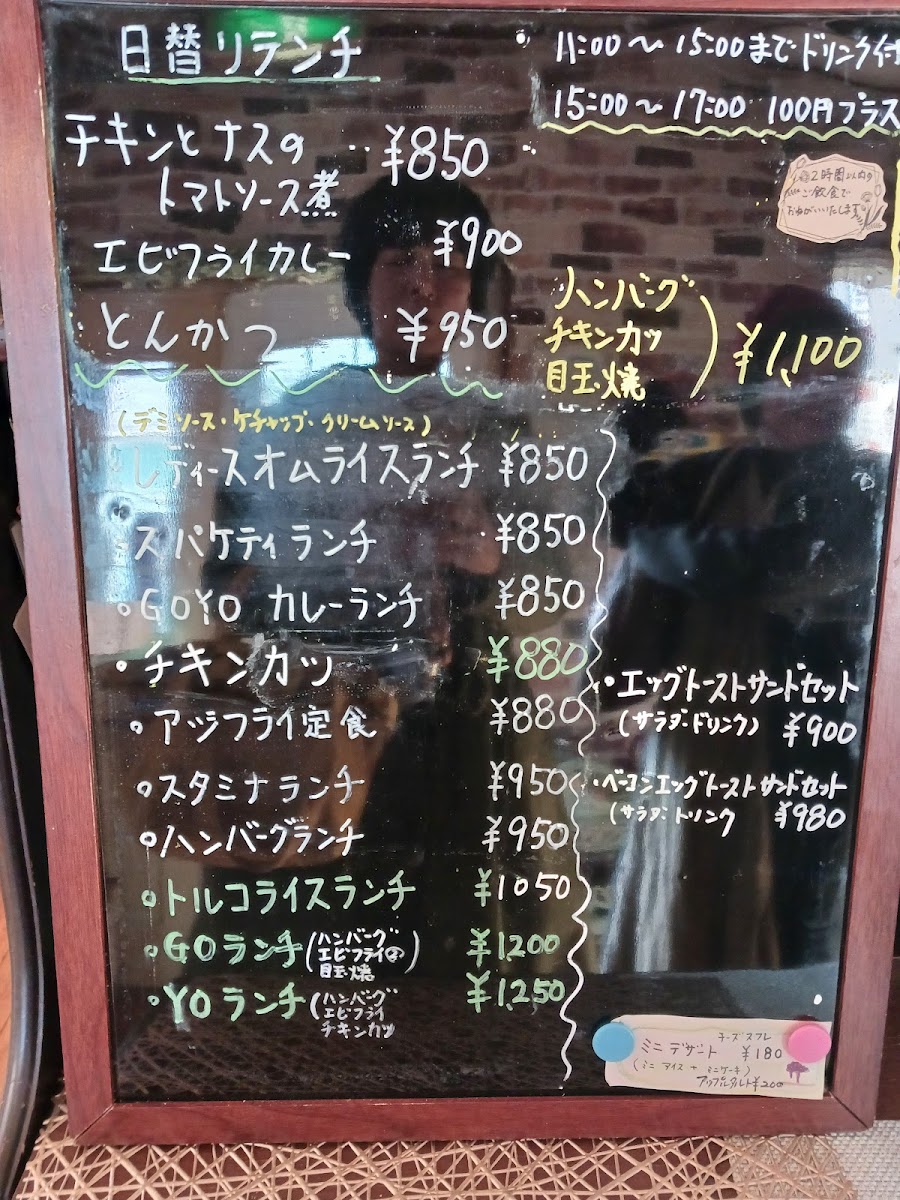 日替リランチ
11:00〜15:00までドリンク付
15:00〜17:00 100円プラス
2時間以内の
ご飲食で
おねがいいたします
チキンとナスの
トマトソース煮 ¥850
エビフライカレー ¥900
とんかつ ¥950
ハンバーグ
チキンカツ
目玉焼
¥1,100
(デミソース・ケチャップ・クリームソース)
レディースオムライスランチ ¥850
スパケティランチ ¥850
GOYO カレーランチ ¥850
チキンカツ ¥880
アジフライ定食 ¥880
スタミナランチ ¥950
ハンバーグランチ ¥950
トルコライスランチ ¥1050
GOランチ(ハンバーグ
エビフライ②
目玉焼) ¥1200
YOランチ(ハンバーグ
エビフライ
チキンカツ ¥1,250
エッグトーストサンドセット
(サラダ・ドリンク) ¥900
ベーコンエッグトーストサンドセット
(サラダ・ドリンク ¥980
チーズスフレ
ミニデザート ¥180
(ミニアイス+ミニケーキ)
アップルタルト¥200